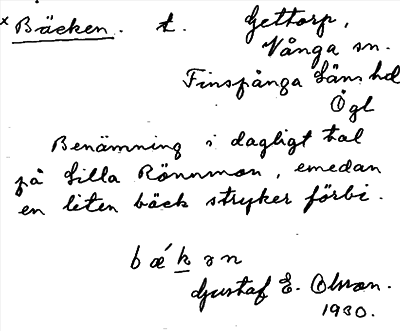 x Bäcken. t. Gettorp,
Vånga sn.
Finspånga läns hd
Ögl
Benämning i dagligt tal
på Lilla Rönnmon, emedan
en liten bäck stryker förbi.
bǽkən
Gustaf E. Olsson.
1930.